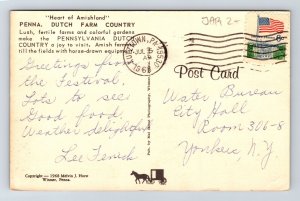 "Heart of Amishland"
PENNA. DUTCH FARM COUNTRY
Lush, fertile farms and colorful gardens
make the PENNSYLVANIA DUTCH
COUNTRY a joy to visit. Amish farmers
till the fields with horse-drawn equipment.
Greetings from
the Festival.
Lots to see
Good food,
Weather delightful
Lee
Copyright — 1968 Melvin J. Horst
Witmer, Penna.
KUTZTOWN, PA
JUL 5
1968
6c
Post Card
Water Bureau
City Hall
Room 306-8
Yonkers, N.Y.